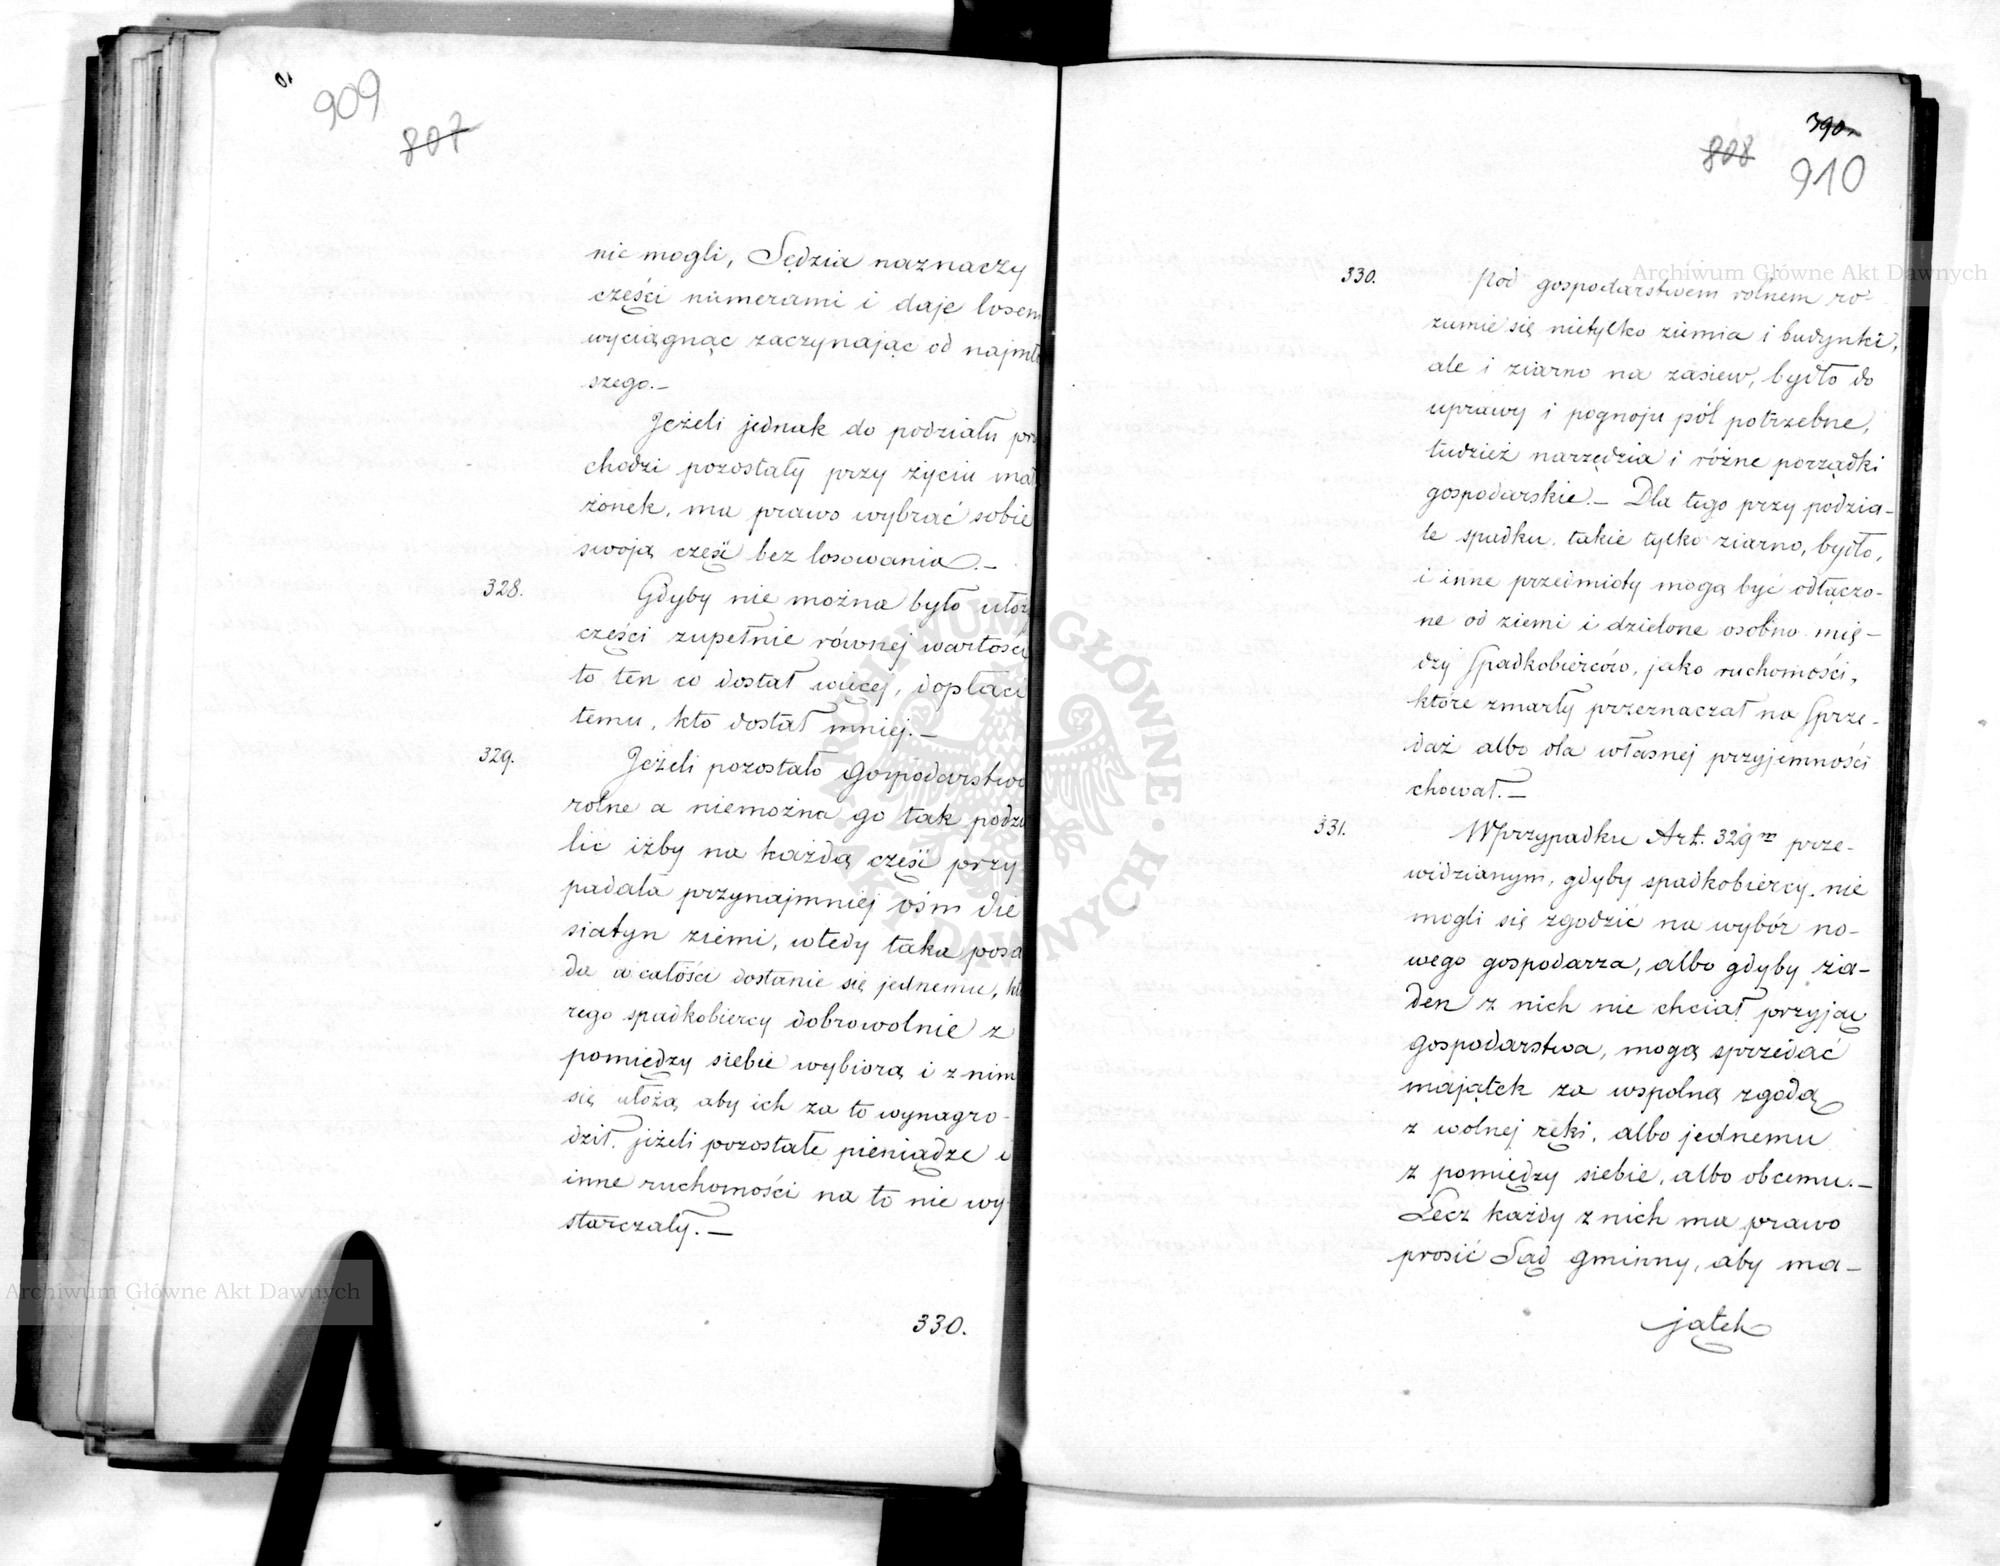 909
807
nie mogli, Sędzia naznaczy
części numerami i daje losem
wyciągnąc zaczynając od najmło
szego.—
Jeżeli jednak do podziału prz
chodzi pozostały przy życiu mał
żonek, ma prawo wybrać sobie
swoją część bez losowania.—
328. Gdyby nie można było ułoż
części zupełnie równej wartości
to ten co dostał więcej, dopłaci
temu, kto dostał mniej.—
329. Jeżeli pozostało Gospodarstwo
rolne a niemożna go tak podzi
lić iżby na każdą część przy
padała przynajmniej ośm die
siatyn ziemi, wtedy taka posa
da w całości dostanie się jednemu, któ
rego spadkobiercy dobrowolnie z
pomiędzy siebie wybiorą i z nim
się ułożą aby ich za to wynagro-
dził, jeżeli pozostałe pieniądze i
inne ruchomości na to nie wy
starczały.—
330.
390
808
910
330. Pod gospodarstwem rolnem ro-
zumie się nietylko ziemia i budynki,
ale i ziarno na zasiew, bydło do
uprawy i pognoju pól potrzebne,
tudzież narzędzia i różne porządki
gospodarskie.— Dla tego przy podzia-
le spadku, takie tylko ziarno, bydło,
i inne przedmioty mogą być odłączo-
ne od ziemi i dzielone osobno mię-
dzy Spadkobierców, jako ruchomości,
które zmarły przeznaczał na Sprze-
daż albo dla własnej przyjemności
chował.—
331. W przypadku Art. 329m prze-
widzianym, gdyby spadkobiercy nie
mogli się zgodzić na wybór no-
wego gospodarza, albo gdyby ża-
den z nich nie chciał przyjąć
gospodarstwa, mogą sprzedać
majątek za wspólną zgodą
z wolnej ręki, albo jednemu
z pomiędzy siebie, albo obcemu.—
Lecz każdy z nich ma prawo
prosić Sąd gminny, aby ma-
jątek
Archiwum Główne Akt Dawnych
Archiwum Główne Akt Dawnych
ARCHIWUM GŁÓWNE AKT DAWNYCH